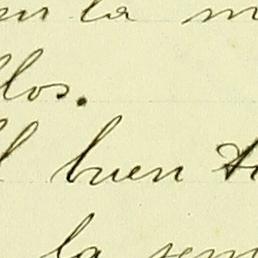 en la m
llos.
l buen t
la sem